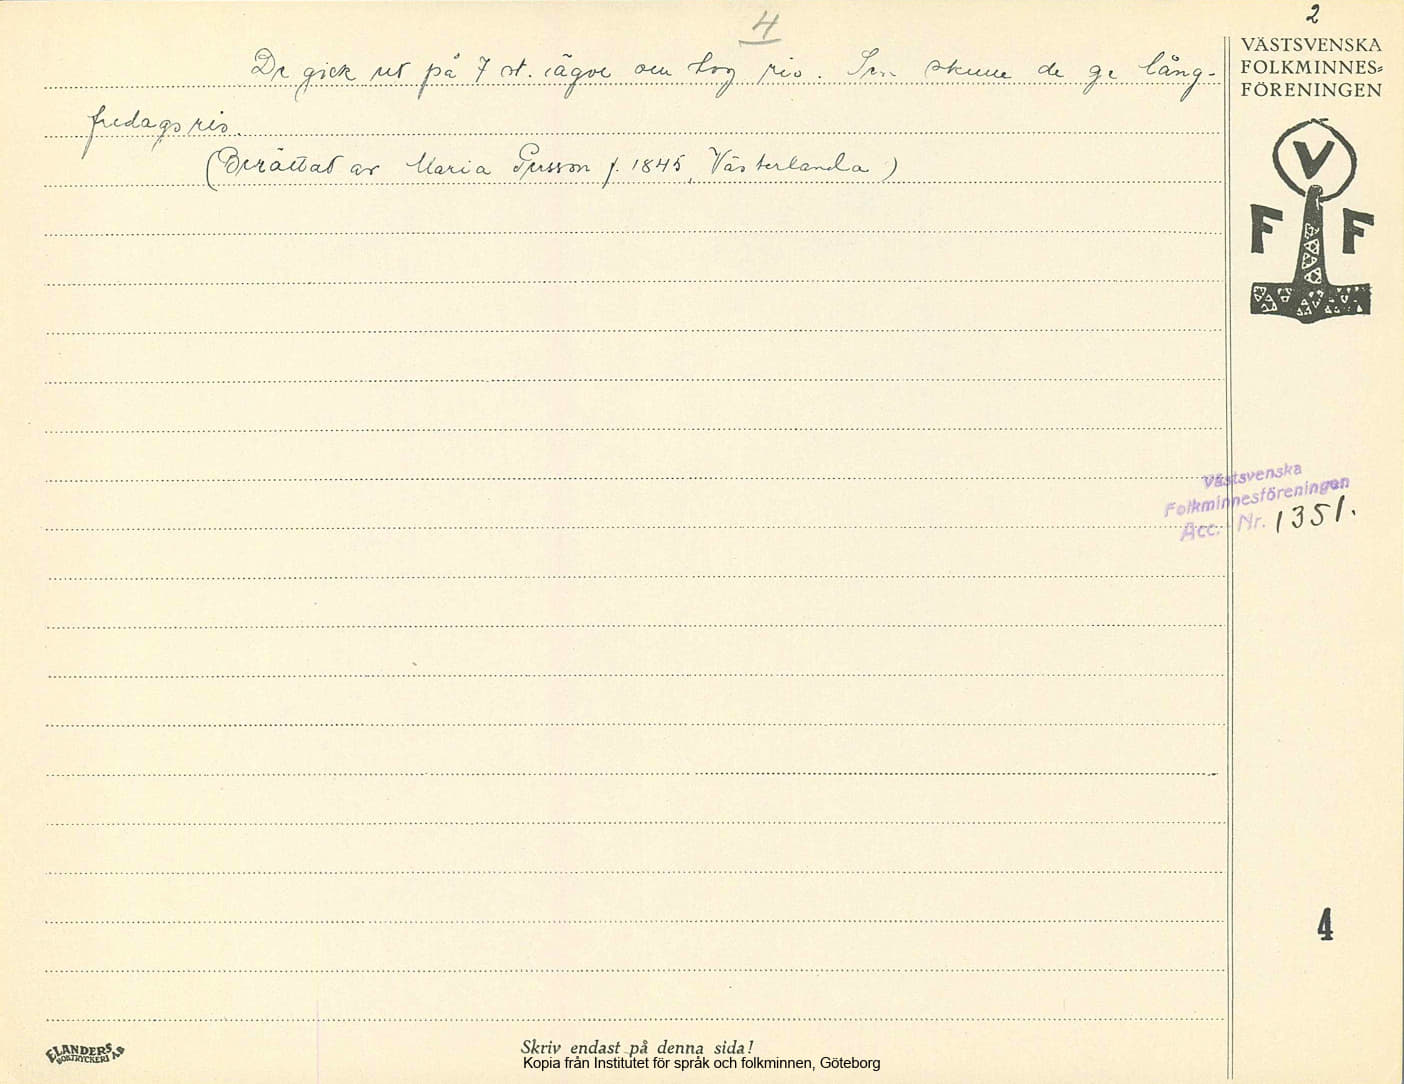 4
2
VÄSTSVENSKA
FOLKMINNES=
FÖRENINGEN
De gick ut på 7 st. ägor och tog ris. Sen skulle de ge lång-
fredagsris.
(Berättat av Maria Persson f. 1845, Västerlanda)
V
F F
Västsvenska
Folkminnesföreningen
Acc. Nr. 1351.
4
ELANDERS
BOKTRYCKERI AB
Skriv endast på denna sida!
Kopia från Institutet för språk och folkminnen, Göteborg